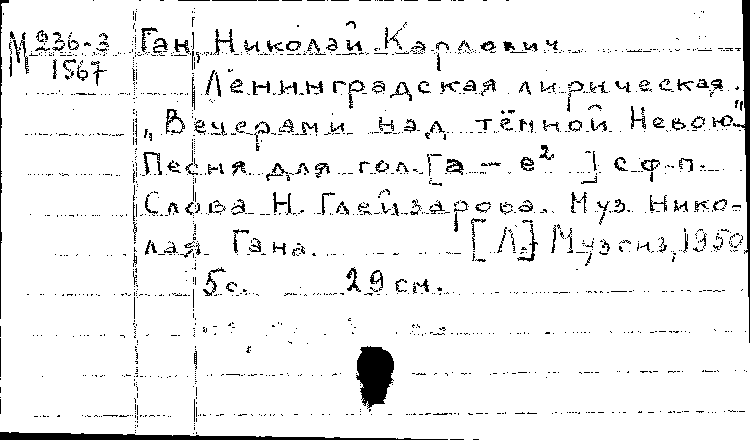 М 236-3 Ган, Николай Карлович
1567
Ленинградская лирическая.
„Вечерами над тёмной Невою".
Песня для гол. [а – е² ] с ф-п.
Слова Н. Глейзарова. Муз. Нико-
лая Гана. [Л.] Музгиз, 1950.
5 с. 29 см.